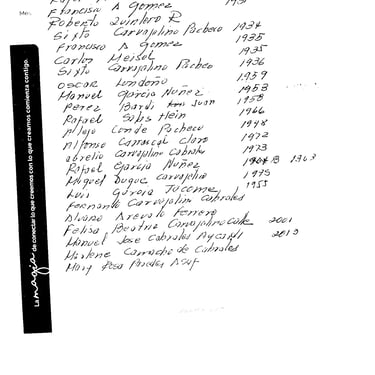 Francisco A Gomez
Roberto Quintero R
Sixto Carvajalino Pacheco 1934
Francisco A Gomez 1935
Carlos Meisel 1935
Sixto Carvajalino Pacheco 1936
Oscar Londoño 1959
Manuel Garcia Nuñez 1953
Perez Juan 1958
Rafael Hein 1966
Conde Pacheco
Alfonso Carrascal Claro 1972
Carvajalino Cabrales 1973
Rafael Garcia Nuñez 1963
Miguel Duque Carvajalino 1975
Luis Garcia 1953
Fernando Carvajalino Cabrales
Alvaro Arevalo Ferrero
Felisa Beatriz Carvajalino 2001
Manuel Jose Cabrales 2013
Marlene Camacho de Cabrales
Mary Rosa
La magia de conectar lo que creemos con lo que creamos comienza contigo.